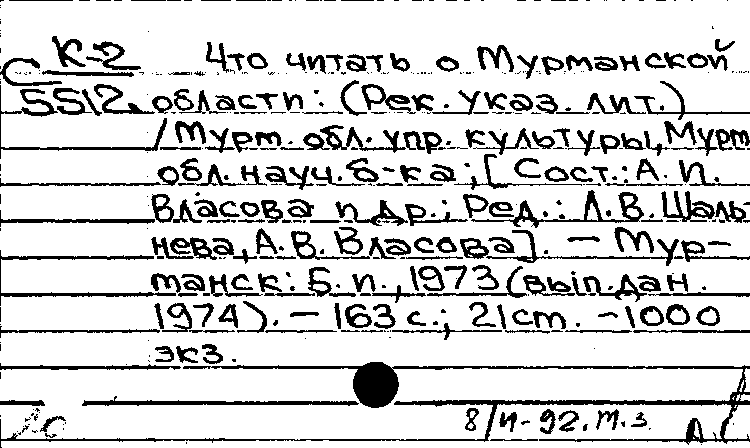 К-2 Что читать о Мурманской
С 5512. области: (Рек. указ. лит.)
/Мурм. обл. упр. культуры, Мурм
обл. науч. б-ка; [Сост.: А. П.
Власова и др.; Ред.: Л. В. Шаль-
нева, А. В. Власова]. — Мур-
манск: Б. и., 1973 (вып. дан.
1974). — 163 с.; 21 см. - 1000
экз.
8/И-92. м.з.